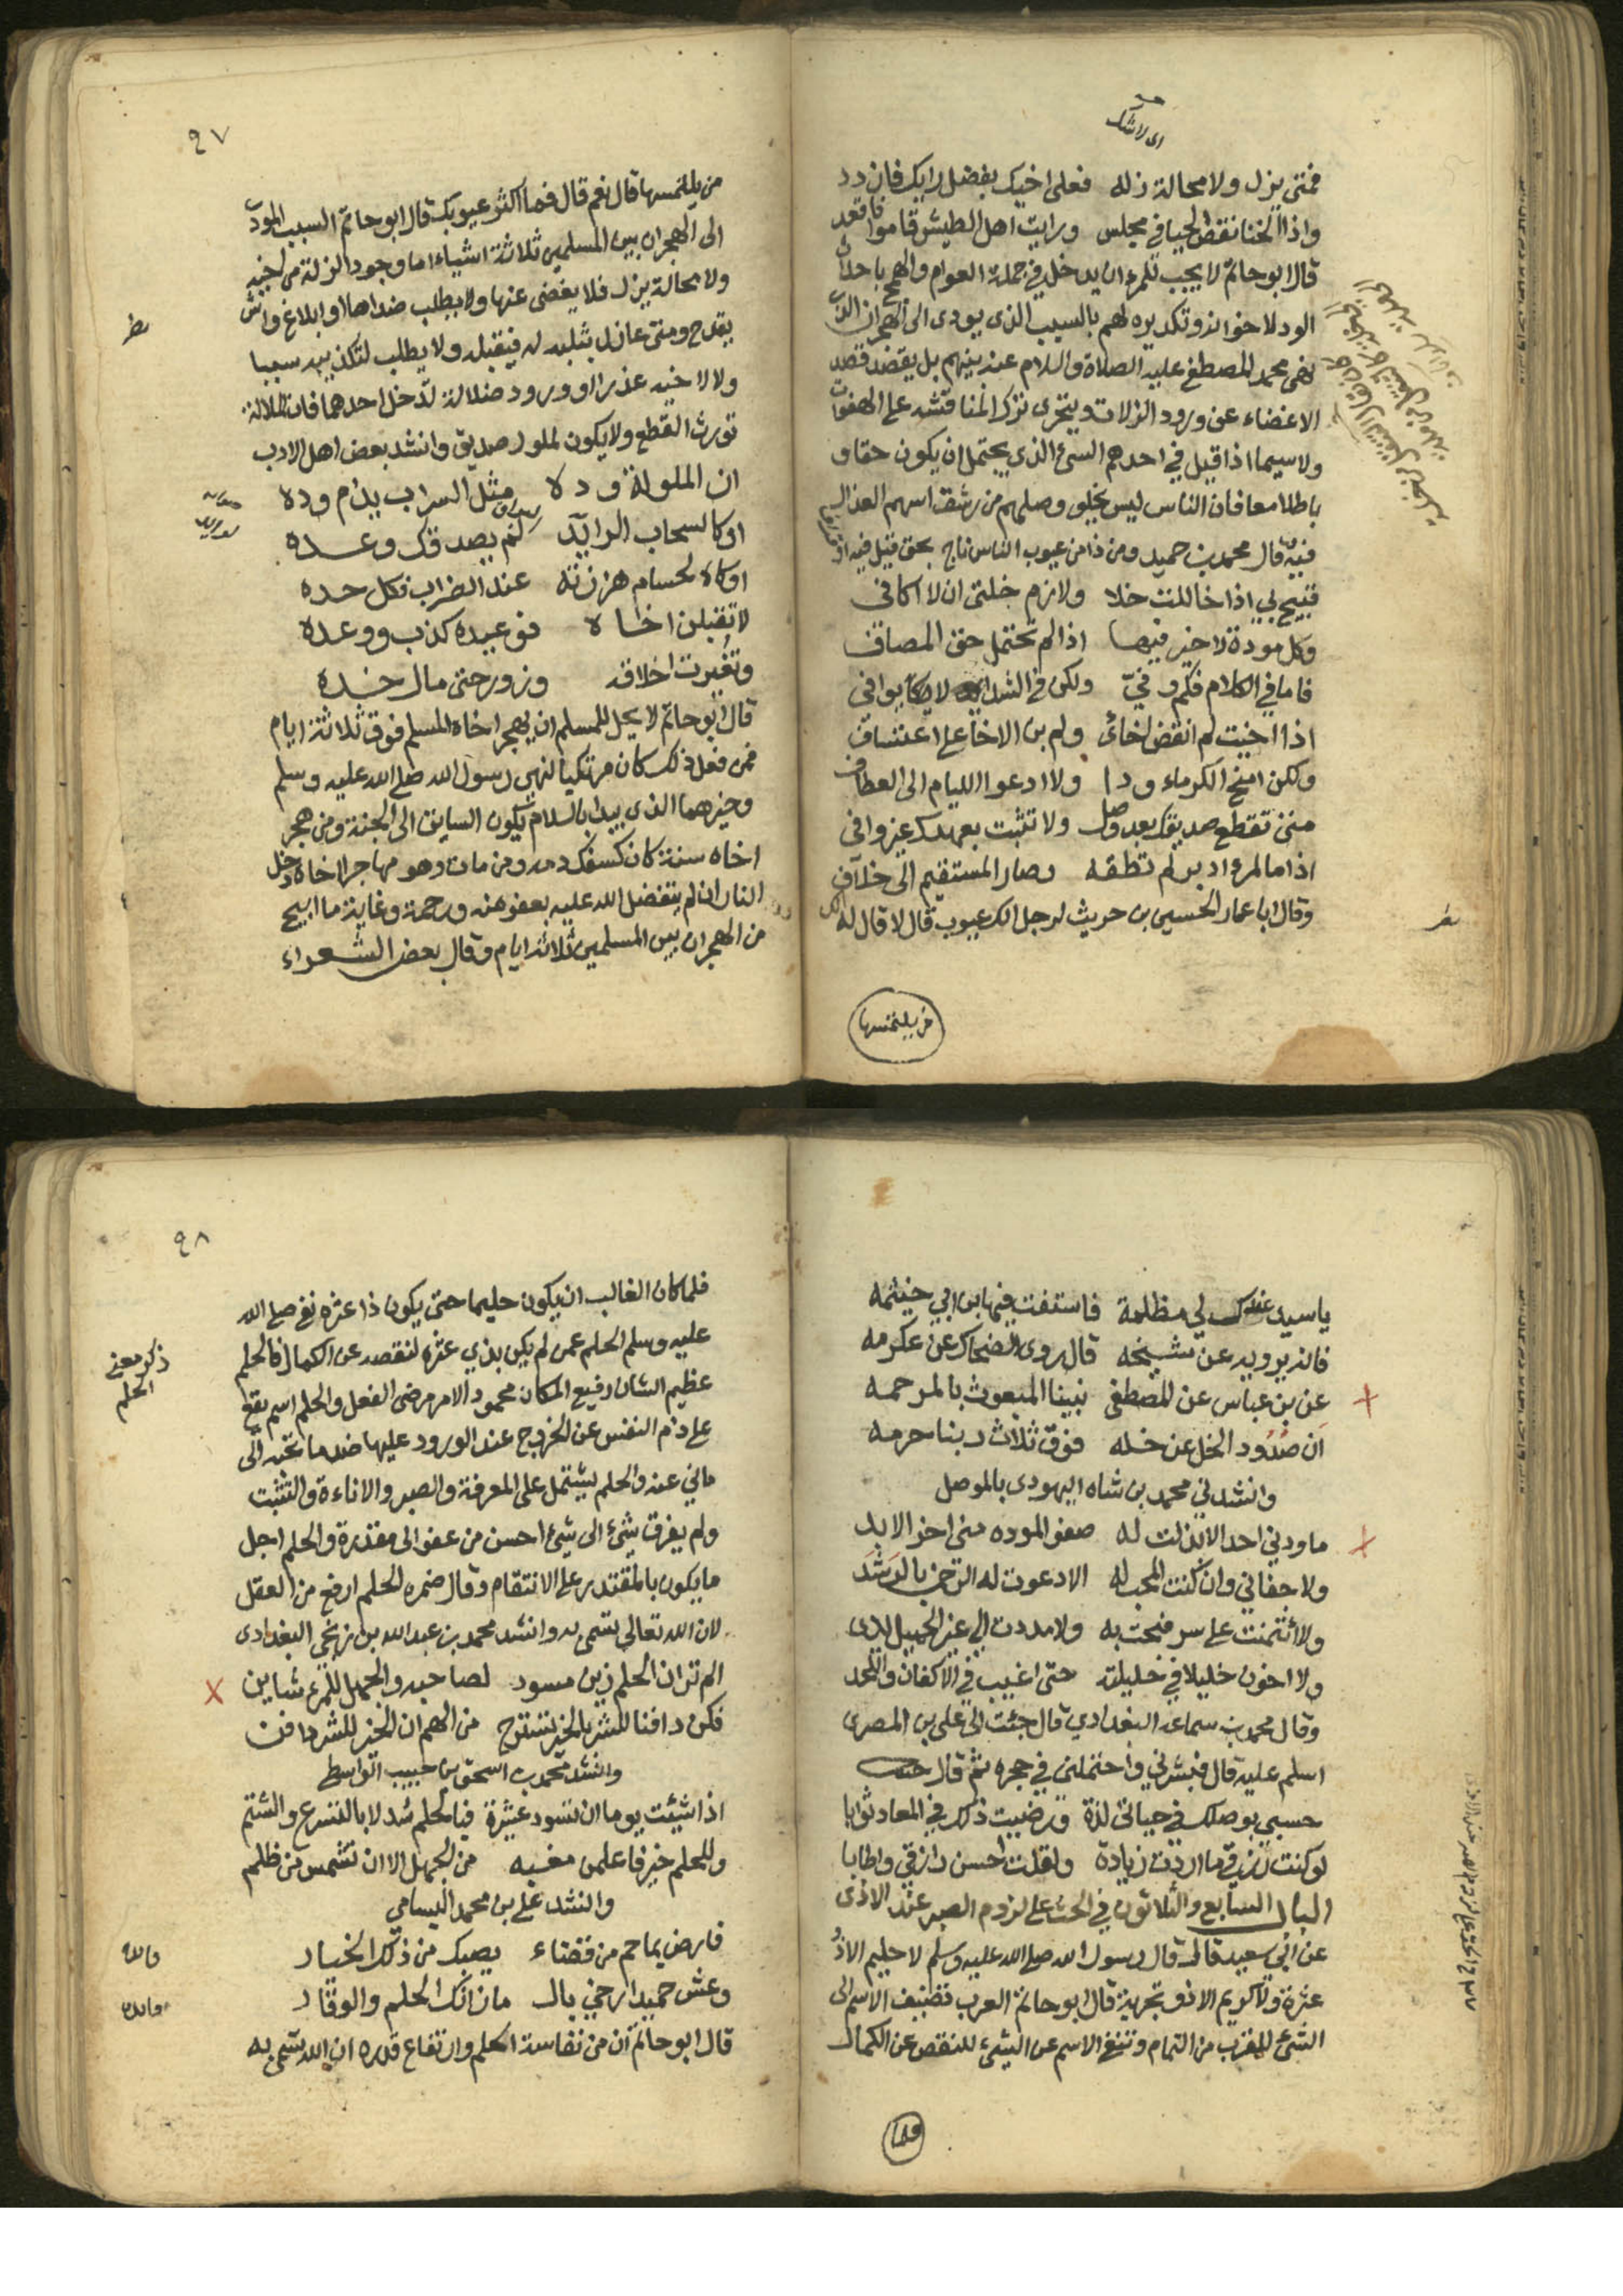 اى لاشك
فمتى يزل ولا محالة زله فعلى اخيك بفضل رايك فازدد
واذا الخنا نقض الحبا في مجلس ورايت اهل الطيش قاموا فاقعد
قال ابو حاتم لا يجب للمرء ان يدخل في جملة العوام والهمج باحداث
الود لاخوانه وتكديره لهم بالسبب الذى يودى الى الهجران الذى
نهى محمد المصطفى عليه الصلاة والسلام عنه بينهم بل يقصد قصد
الاغضاء عن ورود الزلات ويتحرى ترك المناقشه على الهفوات
ولا سيما اذا قيل في احدهم السئ الذى يحتمل ان يكون حقا و
باطلا معا فان الناس ليس يخلو وصلهم من رشق اسهم العذال
فيه قال محمد بن حميد ومن ذا من عيوب الناس ناج بحق قيل فيه او
قبيح لى اذا خاللت خلا ولازم خلتى ان لا اكافى
وكل مودة لا خير فيها اذا لم تحتمل حق المصافى
فاما في الكلام فكم وفىّ ولكن في الشدايد لا يوافي
اذا اخيت لم انقض اخائ ولم بن الاخا على اعتساف
ولكن امنح الكرماء ودا ولا ادعوا الليام الى العطاف
متى تقطع صديقك بعد وصل ولا تثبت بعهدك عز وافى
اذا ما المرء ادبر لم تطقه وصار المستقيم الى خلاف
وقال ابا عمار الحسين بن حريث لرجل الك عيوب قال لا قال له الك
من يلتمسها
٩٧
من يلتمسها قال نعم قال فما اكثر عيوبك قال ابو حاتم السبب المودى
الى الهجران بين المسلمين ثلاثة اشياء اما وجود الزلة من اخيه
ولا محالة يزل فلا يغضى عنها ولا يطلب ضداها او ابلاغ واش
يقدح ومتى عاذل بثلبه له فيقبله ولا يطلب لتكذيبه سببا
ولا لاخيه عذرا او ورود ملالة تدخل احدهما فان الملالة
تورث القطع ولا يكون لملول صديق وانشد بعض اهل الادب
ان الملولة وده مثل السراب يدام وده
اوكالسحاب الرايد لم يصدقك وعده
اوكالحسام هززته عند الضراب فكل حده
لا تقبلن اخاه فوعيده كذب ووعده
وتغيرت اخلاقه وزور حتى مال خده
قال ابو حاتم لا يحل للمسلم ان يهجر اخاه المسلم فوق ثلاثة ايام
فمن فعل ذلك كان مرتكبا لنهى رسول الله صلى الله عليه وسلم
وخيرهما الذى يبدا بالسلام يكون السابق الى الجنة ومن هجر
اخاه سنة كان كسفك دمه ومن مات وهو مهاجر لاخاه دخل
النار ان لم يتفضل الله عليه بعفو منه ورحمة وغاية ما ابيح
من الهجران بين المسلمين ثلاثة ايام وقال بعض الشعراء
يا سيدى عندك لي مظلمة فاستفت فيها ابن ابي خيثمه
فانه يرويه عن شيخه قال روى الضحاك عن عكرمه
عن بن عباس عن المصطفى نبينا المبعوث بالمرحمه
ان صدود الخل عن خله فوق ثلاث ربنا حرمه
وانشدني محمد بن شاه اليهودى بالموصل
ما ودني احد الا بذلت له صفو المودة منى اخر الابد
ولا جفاني وان كنت المحب له الا دعوت له الرحمن بالرشد
ولا ائتمنت على سر فبحت به ولا مددت الى غير الجميل يدى
ولا اخون خليلا في خليلته حتى اغيب في الاكفان واللحد
وقال محمد بن سماعه البغدادي قال جئت الى علي بن المصرى
اسلم عليه قال فبشرني واحتملنى في حجره ثم قال
حسبي بوصلك في حياتى لذة ورضيت ذلك في المعاد ثوابا
لو كنت رزقي ما اردت زيادة ولقلت احسن رازقي واطابا
الباب السابع والثلاثون في الحث على لزوم الصبر عند الاذى
عن ابي سعيد قال قال رسول الله صلى الله عليه وسلم لا حليم الا ذو
عثرة ولا كريم الا ذو تجربة قال ابو حاتم العرب تضيف الاسم الى
الشئ للقرب من التمام وتنفى الاسم عن الشئ للنقص عن الكمال
فلما
٩٨
ذكر معنى
الحلم
فلما كان الغالب ان يكون حليما حتى يكون ذا عثره نفى صلى الله
عليه وسلم الحلم عمن لم يكن بذي عثره لنقصه عن الكمال فالحلم
عظيم الشان رفيع المكان محمود الامر مرضى الفعل والحلم اسم يقع
على زم النفس عن الخروج عند الورود عليها ضد ما تحب الى
ما نهي عنه والحلم يشتمل على المعرفة والصبر والاناءة والتثبت
ولم يقرن شئ الى شئ احسن من عفو الى مقدرة والحلم اجل
ما يكون بالمقتدر على الانتقام وقال ضمره الحلم ارفع من العقل
لان الله تعالى تسمى به وانشد محمد بن عبد الله بن زنجي البغدادى
الم تر ان الحلم زين مسود لصاحبه والجهل للمرء شاين
فكن دافنا للشر بالخير تسترح من الهم ان الخير للشر دافن
وانشد محمد بن اسحق بن حبيب الواسطى
اذا شئت يوما ان تسود عشيرة فبالحلم سد لا بالتسرع والشتم
وللحلم خير فاعلمن مغبه من الجهل الا ان تشمس من ظلم
وانشد علي بن محمد البسامي
فارض بما حم من قضاء يصبك من ذلك الخيار
وعش حميدا رخي بال ما زانك الحلم والوقار
قال ابو حاتم ان من نفاسة الحلم وارتفاع قدره ان الله تسمى به